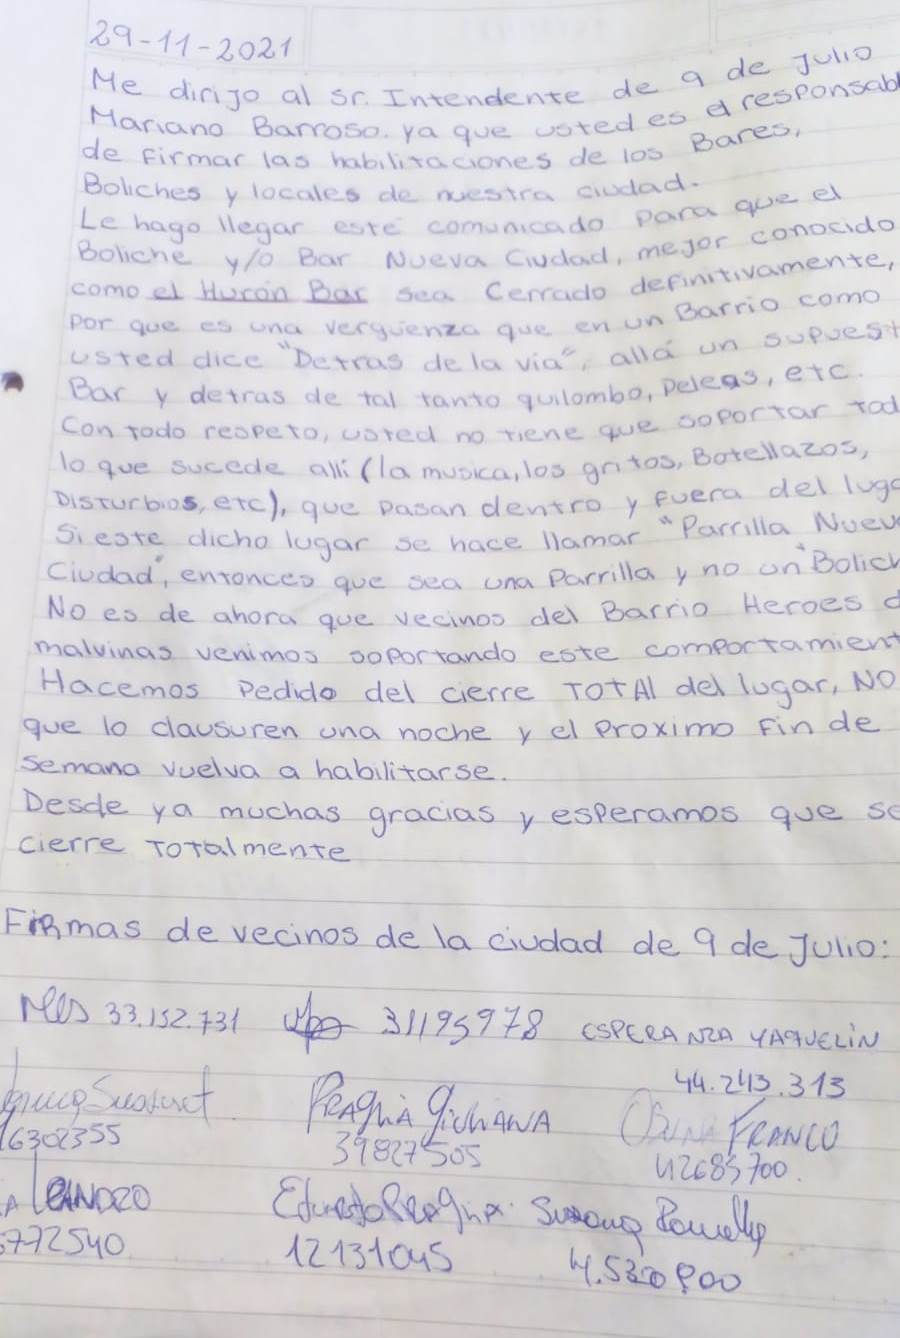 29-11-2021
Me dirijo al sr. Intendente de 9 de Julio
Mariano Barroso. ya que usted es el responsabl
de firmar las habilitaciones de los Bares,
Boliches y locales de nuestra ciudad.
Le hago llegar este comunicado para que el
Boliche y/o Bar Nueva Ciudad, mejor conocido
como el Hurón Bar sea Cerrado definitivamente,
por que es una verguenza que en un Barrio como
usted dice "Detras de la via", allá un supuest
Bar y detras de tal tanto quilombo, Peleas, etc.
Con todo respeto, usted no tiene que soportar tod
lo que sucede allí (la musica, los gritos, Botellazos,
Disturbios, etc), que pasan dentro y fuera del luga
Si este dicho lugar se hace llamar "Parrilla Nuev
Ciudad", entonces que sea una Parrilla y no un "Bolich
No es de ahora que vecinos del Barrio Heroes d
malvinas venimos soportando este comportamient
Hacemos Pedido del cierre TOTAl del lugar, NO
que lo clausuren una noche y el Proximo Fin de
semana vuelva a habilitarse.
Desde ya muchas gracias y esperamos que se
cierre Totalmente
Firmas de vecinos de la ciudad de 9 de Julio:
33.152.731 31195978 ESPERANZA YAQUELIN
44.243.313
GiuliANA FRANCO
16302355 39827505 42685700.
Ernesto Susana
772540 12131045